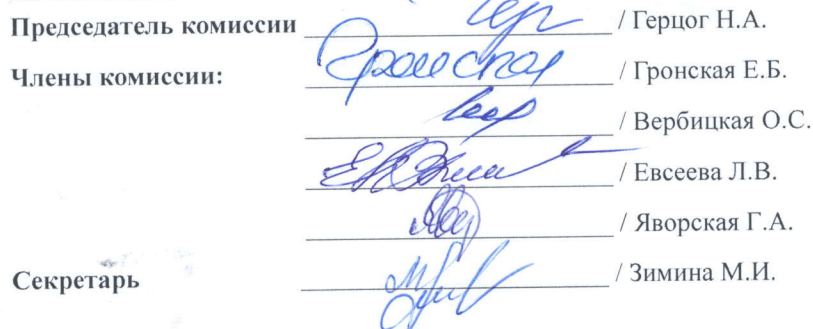 Председатель комиссии / Герцог Н.А.
Члены комиссии: Гронская / Гронская Е.Б.
/ Вербицкая О.С.
/ Евсеева Л.В.
/ Яворская Г.А.
Секретарь / Зимина М.И.